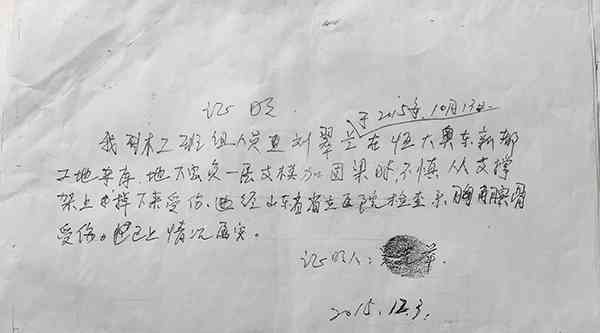 证明
于2015年10月13日
我列木工班组人员 刘翠兰在恒大奥东新都
工地车库地下室负一层支模加固梁时不慎从支撑
架上 掉下来受伤。 经山东省省立医院检查 胸 腰骨
受伤。 以上情况属实。
证明人:
2015.12.3.